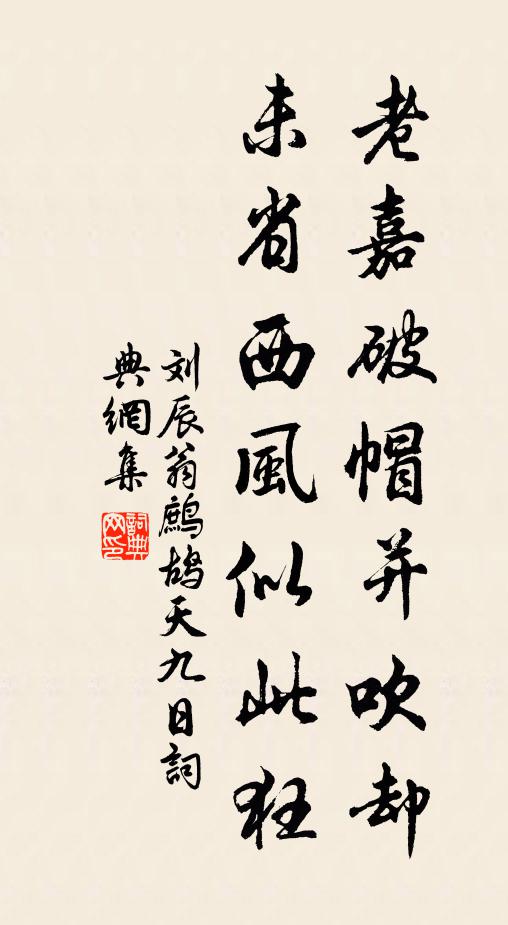 老嘉破帽并吹却
未省西風似此狂
刘辰翁鷓鴣天九日詞
典網集
詞典網印